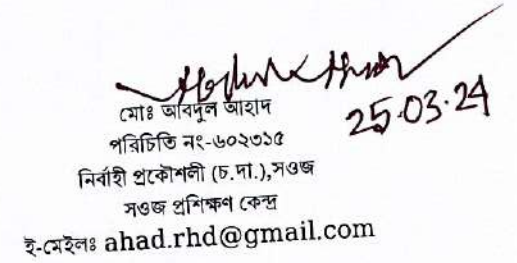 25.03.24
মোঃ আবদুল আহাদ
পরিচিতি নং-৬০২৩১৫
নির্বাহী প্রকৌশলী (চ.দা.),সওজ
সওজ প্রশিক্ষণ কেন্দ্র
ই-মেইলঃ ahad.rhd@gmail.com